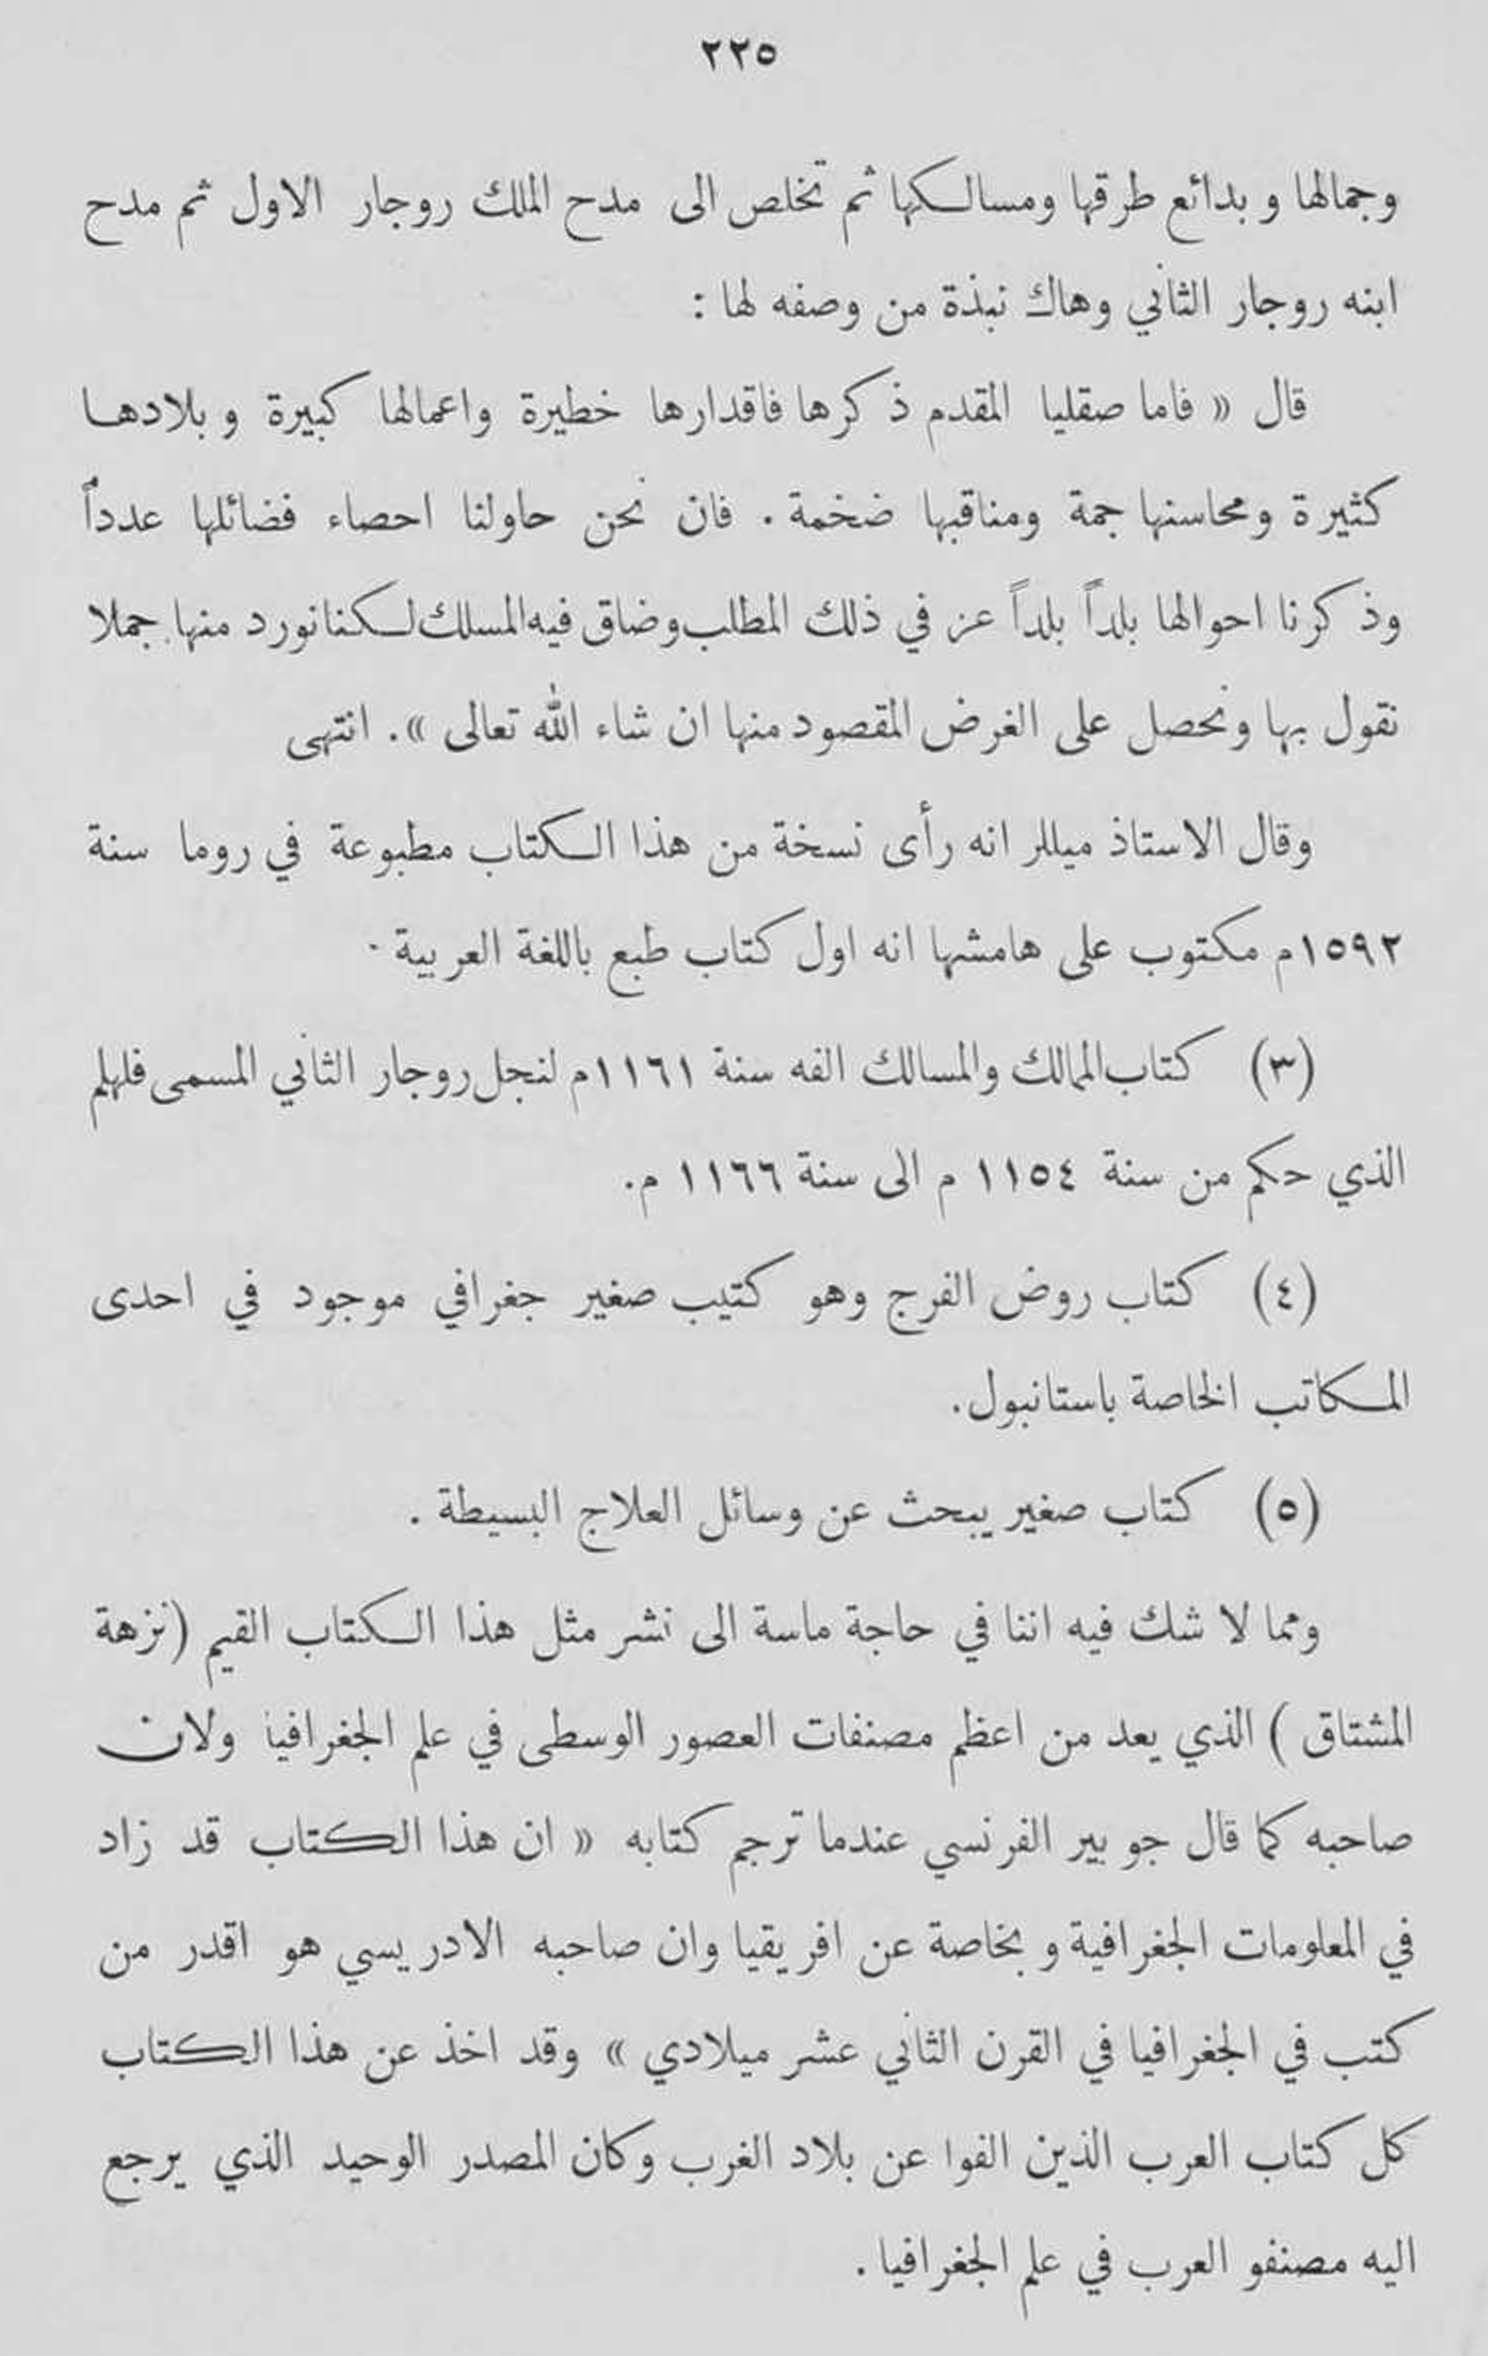 ٢٢٥
وجمالها وبدائع طرقها ومسالكها ثم تخلص الى مدح الملك روجار الاول ثم مدح
ابنه روجار الثاني وهاك نبذة من وصفه لها :
قال « فاما صقليا المقدم ذكرها فاقدارها خطيرة واعمالها كبيرة وبلادها
كثيرة ومحاسنها جمة ومناقبها ضخمة . فان نحن حاولنا احصاء فضائلها عدداً
وذكرنا احوالها بلداً بلداً عز في ذلك المطلب وضاق فيه المسلك لكنا نورد منها جملا
نقول بها ونحصل على الغرض المقصود منها ان شاء الله تعالى ». انتهى
وقال الاستاذ ميللر انه رأى نسخة من هذا الكتاب مطبوعة في روما سنة
١٥٩٢م مكتوب على هامشها انه اول كتاب طبع باللغة العربية ·
(٣) كتاب الممالك والمسالك الفه سنة ١١٦١م لنجل روجار الثاني المسمى فلهلم
الذي حكم من سنة ١١٥٤ م الى سنة ١١٦٦ م.
(٤) كتاب روض الفرج وهو كتيب صغير جغرافي موجود في احدى
المكاتب الخاصة باستانبول.
(٥) كتاب صغير يبحث عن وسائل العلاج البسيطة .
ومما لا شك فيه اننا في حاجة ماسة الى نشر مثل هذا الكتاب القيم (نزهة
المشتاق ) الذي يعد من اعظم مصنفات العصور الوسطى في علم الجغرافيا ولان
صاحبه كما قال جوبير الفرنسي عندما ترجم كتابه « ان هذا الكتاب قد زاد
في المعلومات الجغرافية وبخاصة عن افريقيا وان صاحبه الادريسي هو اقدر من
كتب في الجغرافيا في القرن الثاني عشر ميلادي » وقد اخذ عن هذا الكتاب
كل كتاب العرب الذين الفوا عن بلاد الغرب وكان المصدر الوحيد الذي يرجع
اليه مصنفو العرب في علم الجغرافيا .